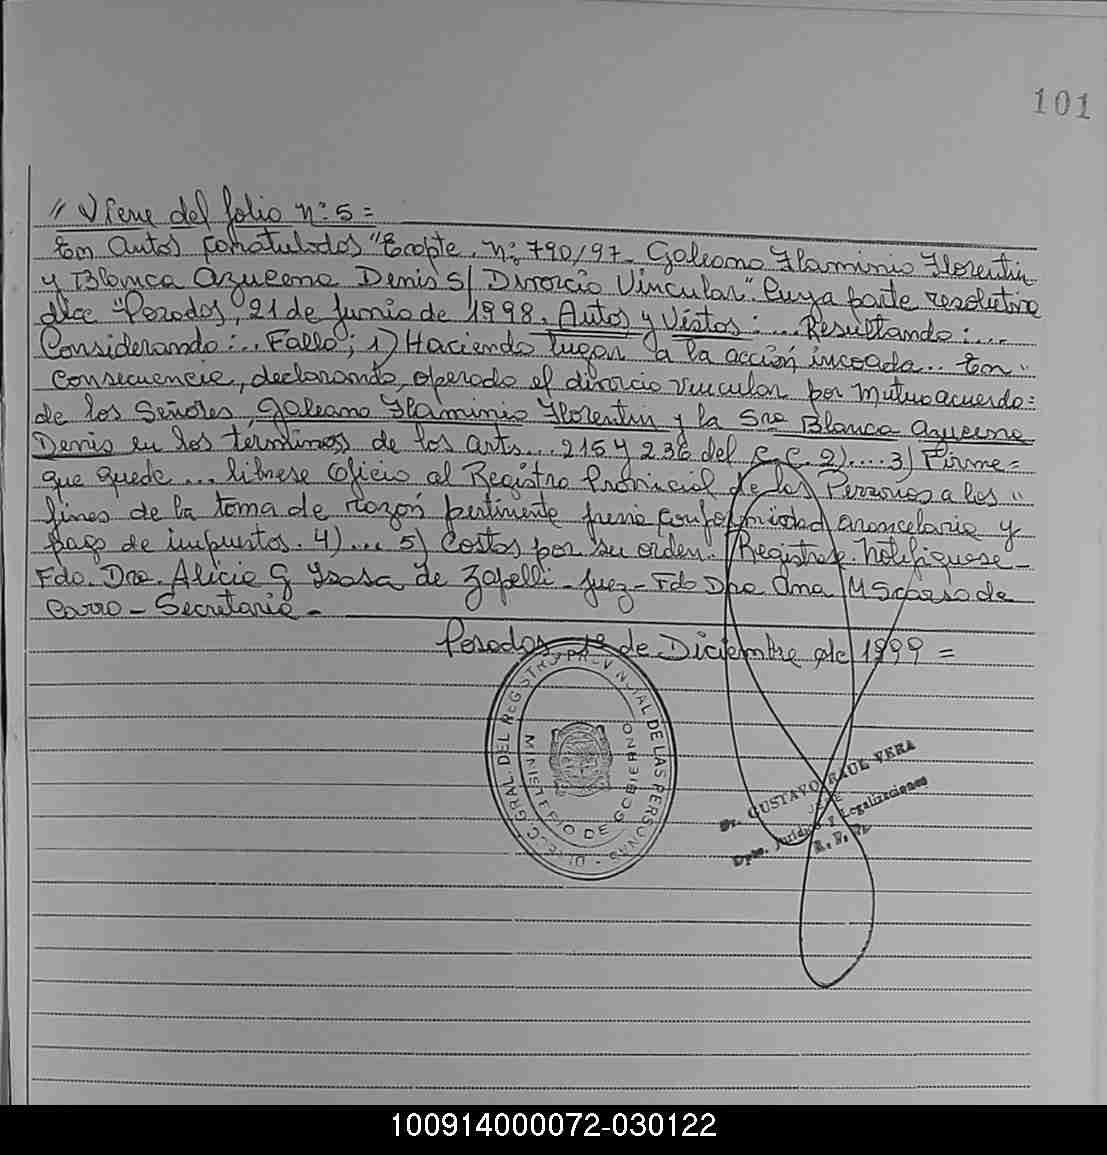 101
// Viene del folio nº 5 =
en autos caratulados "Expte. nº 790/97 - Galeano Flaminio Florentin
y Blanca Azucena Denis s/ Divorcio Vincular". Cuya parte resolutiva
dice "Posadas, 21 de Junio de 1998. Autos y Vistos: .... Resultando: ....
Considerando: ... Fallo; 1) Haciendo lugar a la acción incoada... En "
consecuencia, declarando, operado el divorcio vincular por mutuo acuerdo =
de los Señores Galeano Flaminio Florentin y la Sra Blanca Azucena
Denis en los términos de los arts... 215 y 236 del C.C. 2).... 3) Firme =
que quede ... líbrese oficio al Registro Provincial de las Personas a los "
fines de la toma de razón pertinente previa conformidad arancelaria y
pago de impuestos. 4) ... 5) Costas por su orden. Regístrese. Notifíquese -
Fdo. Dra. Alicia G Ysasa de Zapelli - Juez - Fdo Dra Ana M Scarso de
Carro - Secretaria -
Posadas 1º de Diciembre de 1999 =
GRAL. DEL REGISTRO PROVINCIAL DE LAS PERSONAS
MINISTERIO DE GOBIERNO
Dr. GUSTAVO RAUL VERA
JEFE
Dpto. Jurídico y Legalizaciones
R. P. P.
100914000072-030122